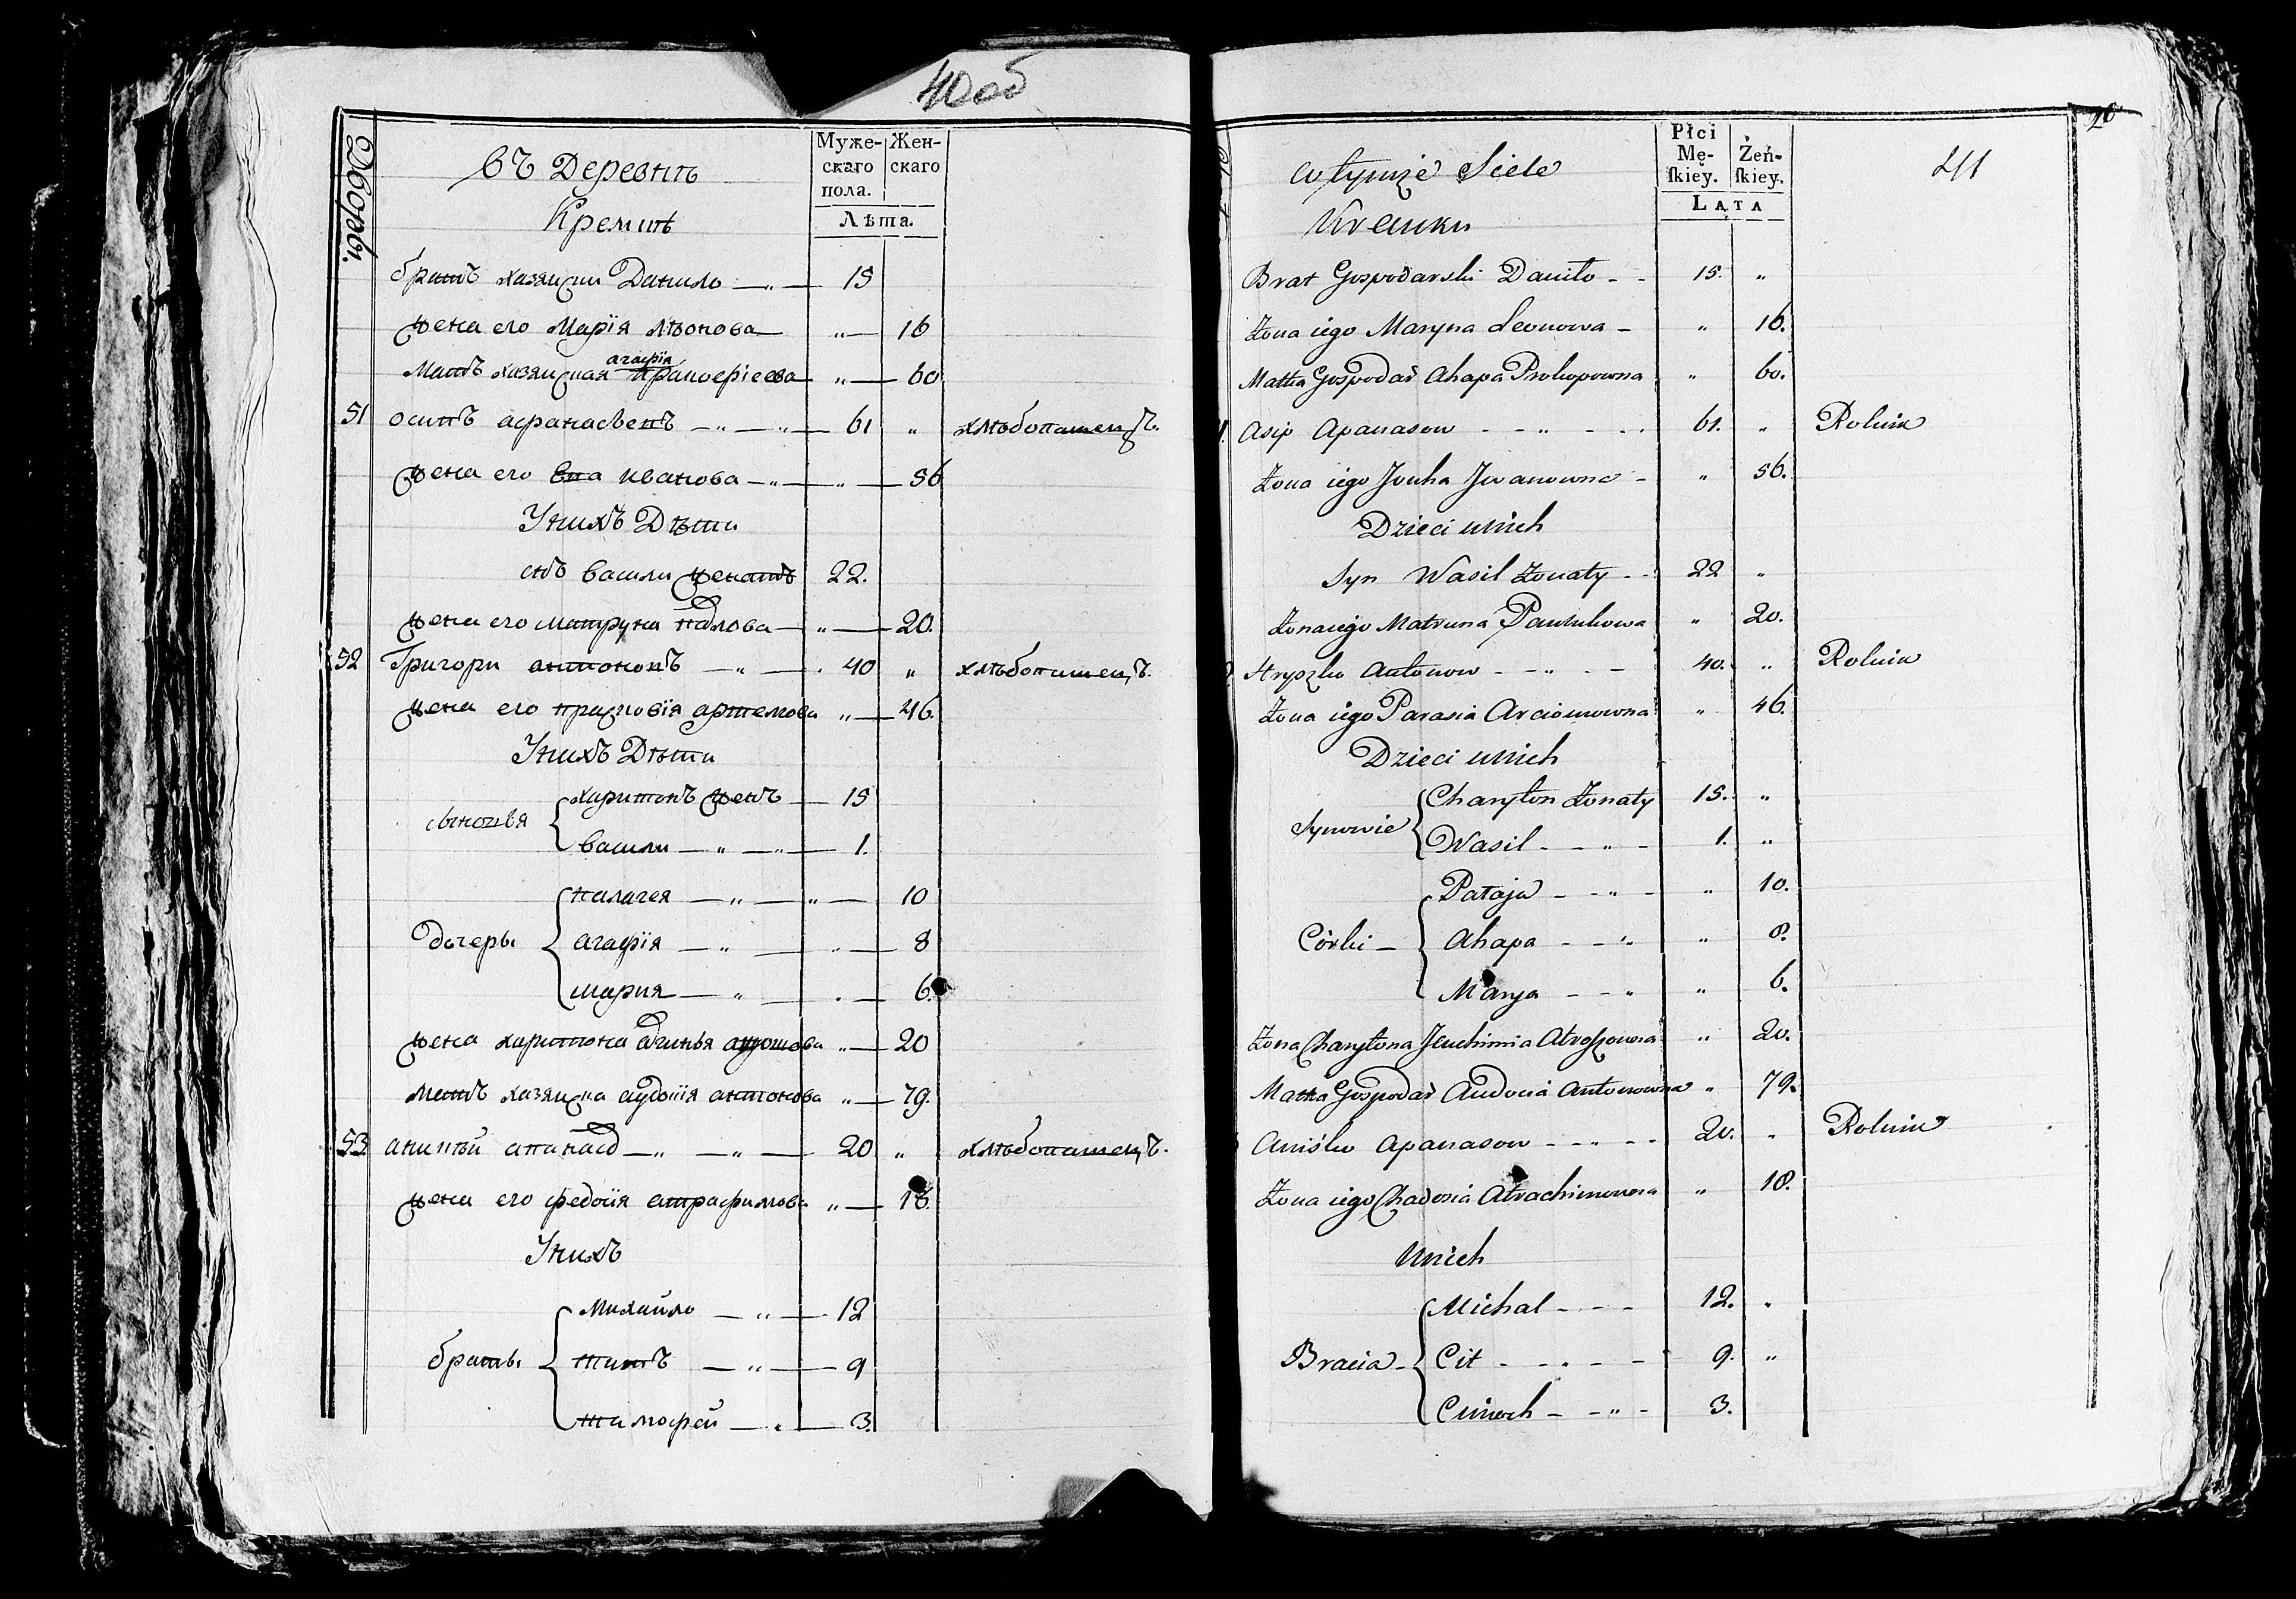 40 об
Дворы.
въ Деревнѣ
Кремнѣ
Муже-скаго пола. Жен-скаго
Лѣта.
братъ хазяиски Данило — 15
жена его Марія Лѣонова — " — 16
Матъ хазяиская агафія Пракофіеева — " — 60
51 осипъ афанасьевъ — 61 " хлѣбопашецъ.
жена его Ева иванова — " — 56
Унихъ Дѣти
снъ васили женатъ 22.
жена его матруна павлова — " — 20.
52 Григори антоновъ — 40 " хлѣбопашецъ.
жена его прасковія артемова " — 46.
Унихъ Дѣти
сыновья { харитонъ женъ — 15
васили — " — 1.
Дочеры { палагея — " — 10
агафія — " — 8
мария — " — 6.
жена харитона — 20
матъ хазяиска аудоція антонова " — 79.
53 апанасов — " — 20 " хлѣбопашецъ.
жена его федоція атрафимова " — 18.
Унихъ
братьы { Михайло — " — 12
титъ — " — 9
тимофей — " — 3.
20
41
w tymże Siele
Kremku
Płci Mę-ſkiey. Żeń-ſkiey.
LATA
Brat Gospodarski Daniło - - 15. "
Żona iego Maryna Leonowa - " 16.
Matka Gospodar Ahapa Prokopowna " 60.
Asip Apanasow - - " - - 61. " Rolnik
Żona iego Jouha Jwanowna - " 56.
Dzieci unich
Syn Wasil Żonaty - - 22 "
Żona iego Matruna Pawlukowa " 20.
Hryszko Antonow - - " - - 40. " Rolnik
Żona iego Parasia Arciomowna " 46.
Dzieci unich
Synowie { Charyton Żonaty 15. "
Wasil - - " - 1. "
Córki - { Pałaja - - " - " 10.
Ahapa - - " " 8.
Marya - - " " 6.
Żona Charytona Jeuchimia Atroszowna " 20.
Matka Gospodar Audocia Antonowna " 79.
Aniśko Apanasow - - " - - 20. " Rolnik
Żona iego Chadosia Atrachimowna " 18.
Unich
Bracia - { Michal - - - 12. "
Cit - - " - - 9. "
Cimoch - - " - 3.